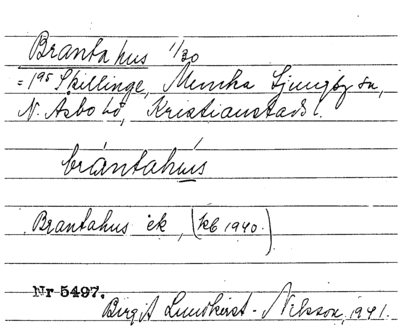 Brantahus 1/30
= 1⁹⁵ Skillinge, Munka Ljungby sn,
N. Åsbo hd, Kristianstads l.
brántahùs
Brantahus ek, (kb 1940.)
Nr 5497.
Birgit Lundkvist-Nilsson, 1941.